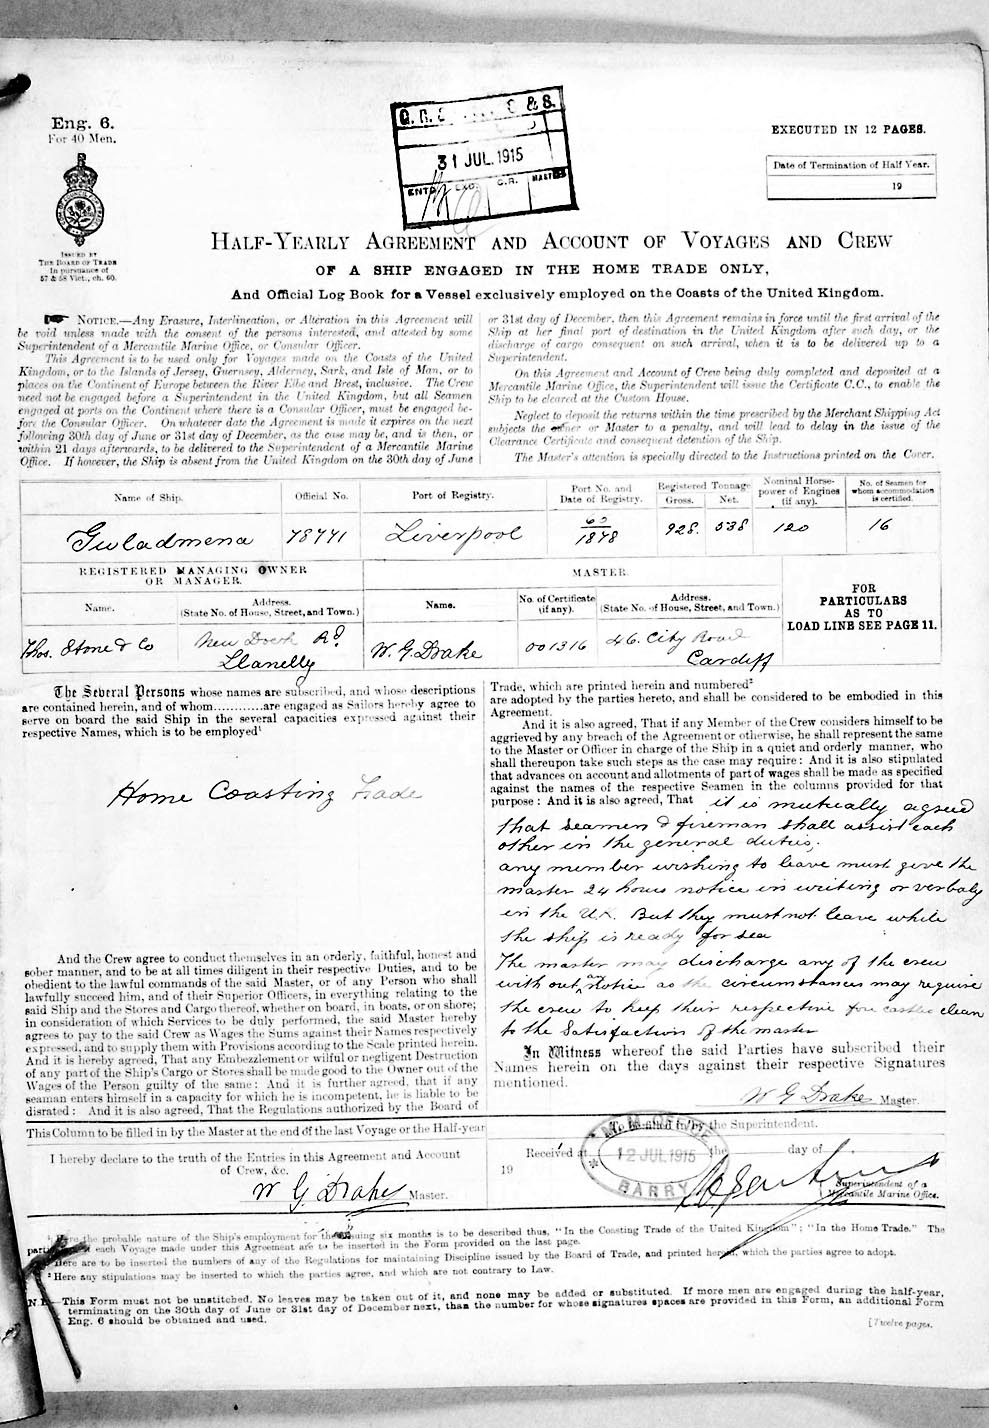 Eng. 6.
For 40 Men.
ISSUED BY
THE BOARD OF TRADE
In pursuance of
57 & 58 Vict., ch. 60.
& S.
31 JUL. 1915
ENTD. EXD. C.R. MASTERS
EXECUTED IN 12 PAGES.
Date of Termination of Half Year.
19
HALF-YEARLY AGREEMENT AND ACCOUNT OF VOYAGES AND CREW
OF A SHIP ENGAGED IN THE HOME TRADE ONLY,
And Official Log Book for a Vessel exclusively employed on the Coasts of the United Kingdom.
NOTICE.—Any Erasure, Interlineation, or Alteration in this Agreement will
be void unless made with the consent of the persons interested, and attested by some
Superintendent of a Mercantile Marine Office, or Consular Officer.
This Agreement is to be used only for Voyages made on the Coasts of the United
Kingdom, or to the Islands of Jersey, Guernsey, Alderney, Sark, and Isle of Man, or to
places on the Continent of Europe between the River Elbe and Brest, inclusive. The Crew
need not be engaged before a Superintendent in the United Kingdom, but all Seamen
engaged at ports on the Continent where there is a Consular Officer, must be engaged be-
fore the Consular Officer. On whatever date the Agreement is made it expires on the next
following 30th day of June or 31st day of December, as the case may be, and is then, or
within 21 days afterwards, to be delivered to the Superintendent of a Mercantile Marine
Office. If however, the Ship is absent from the United Kingdom on the 30th day of June
or 31st day of December, then this Agreement remains in force until the first arrival of the
Ship at her final port of destination in the United Kingdom after such day, or the
discharge of cargo consequent on such arrival, when it is to be delivered up to a
Superintendent.
On this Agreement and Account of Crew being duly completed and deposited at a
Mercantile Marine Office, the Superintendent will issue the Certificate C.C., to enable the
Ship to be cleared at the Custom House.
Neglect to deposit the returns within the time prescribed by the Merchant Shipping Act
subjects the owner or Master to a penalty, and will lead to delay in the issue of the
Clearance Certificate and consequent detention of the Ship.
The Master's attention is specially directed to the Instructions printed on the Cover.
Name of Ship. Official No. Port of Registry. Port No. and Date of Registry. Registered Tonnage Gross. Net. Nominal Horse-power of Engines (if any). No. of Seamen for whom accommodation is certified.
Gwladmena 78771 Liverpool 62/1878 928. 538 120 16
REGISTERED MANAGING OWNER OR MANAGER.
MASTER.
Name. Address. (State No. of House, Street, and Town.) Name. No. of Certificate (if any). Address. (State No. of House, Street, and Town.)
FOR
PARTICULARS
AS TO
LOAD LINE SEE PAGE 11.
Thos. Stone & Co New Dock Rd. Llanelly W. G. Drake 001316 46. City Road Cardiff
The Several Persons whose names are subscribed, and whose descriptions
are contained herein, and of whom............are engaged as Sailors hereby agree to
serve on board the said Ship in the several capacities expressed against their
respective Names, which is to be employed¹
Home Coasting Trade
And the Crew agree to conduct themselves in an orderly, faithful, honest and
sober manner, and to be at all times diligent in their respective Duties, and to be
obedient to the lawful commands of the said Master, or of any Person who shall
lawfully succeed him, and of their Superior Officers, in everything relating to the
said Ship and the Stores and Cargo thereof, whether on board, in boats, or on shore;
in consideration of which Services to be duly performed, the said Master hereby
agrees to pay to the said Crew as Wages the Sums against their Names respectively
expressed, and to supply them with Provisions according to the Scale printed herein.
And it is hereby agreed, That any Embezzlement or wilful or negligent Destruction
of any part of the Ship's Cargo or Stores shall be made good to the Owner out of the
Wages of the Person guilty of the same: And it is further agreed, that if any
seaman enters himself in a capacity for which he is incompetent, he is liable to be
disrated: And it is also agreed, That the Regulations authorized by the Board of
Trade, which are printed herein and numbered²
are adopted by the parties hereto, and shall be considered to be embodied in this
Agreement.
And it is also agreed, That if any Member of the Crew considers himself to be
aggrieved by any breach of the Agreement or otherwise, he shall represent the same
to the Master or Officer in charge of the Ship in a quiet and orderly manner, who
shall thereupon take such steps as the case may require: And it is also stipulated
that advances on account and allotments of part of wages shall be made as specified
against the names of the respective Seamen in the columns provided for that
purpose: And it is also agreed, That it is mutually agreed
that seamen & fireman shall assist each
other in the general duties.
any member wishing to leave must give the
master 24 hours notice in writing or verbaly
in the U.K. But they must not leave while
the ship is ready for sea
The master may discharge any of the crew
with out any notice as the circumstances may require
the crew to keep their respective fore castle clean
to the Satisfaction of the master
In Witness whereof the said Parties have subscribed their
Names herein on the days against their respective Signatures
mentioned.
W G Drake Master.
This Column to be filled in by the Master at the end of the last Voyage or the Half-year
I hereby declare to the truth of the Entries in this Agreement and Account
of Crew, &c.
W G Drake Master.
To be filled in by the Superintendent.
Received at the day of
19
M.M. OFFICE
12 JUL 1915
BARRY
Superintendent of a
Mercantile Marine Office.
¹ Here the probable nature of the Ship's employment for the ensuing six months is to be described thus, "In the Coasting Trade of the United Kingdom"; "In the Home Trade." The
particulars of each Voyage made under this Agreement are to be inserted in the Form provided on the last page.
Here are to be inserted the numbers of any of the Regulations for maintaining Discipline issued by the Board of Trade, and printed herein, which the parties agree to adopt.
³ Here any stipulations may be inserted to which the parties agree, and which are not contrary to Law.
N.B.—This Form must not be unstitched. No leaves may be taken out of it, and none may be added or substituted. If more men are engaged during the half-year,
terminating on the 30th day of June or 31st day of December next, than the number for whose signatures spaces are provided in this Form, an additional Form
Eng. 6 should be obtained and used.
[Twelve pages.